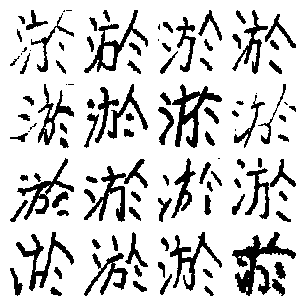 淤淤淤淤
淤淤淤淤
淤淤淤淤
淤淤淤淤